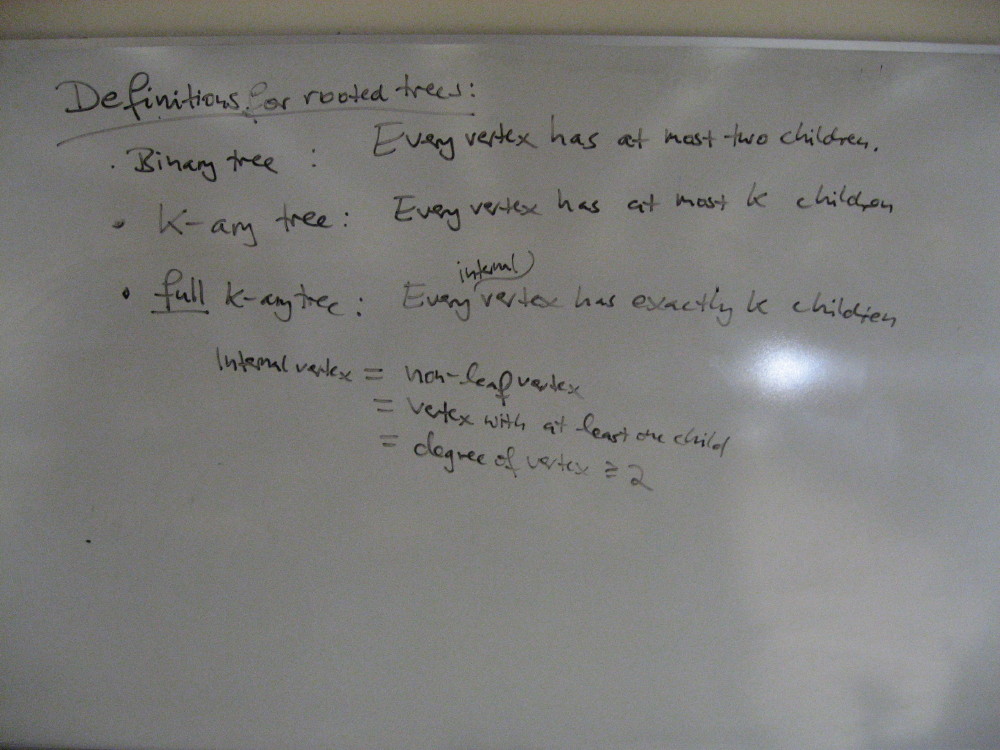 Definitions for rooted trees:
· Binary tree : Every vertex has at most two children.
• K-ary tree : Every vertex has at most k children
internal
• full k-ary tree : Every vertex has exactly k children
Internal vertex = non-leaf vertex
= vertex with at least one child
= degree of vertex ≥ 2